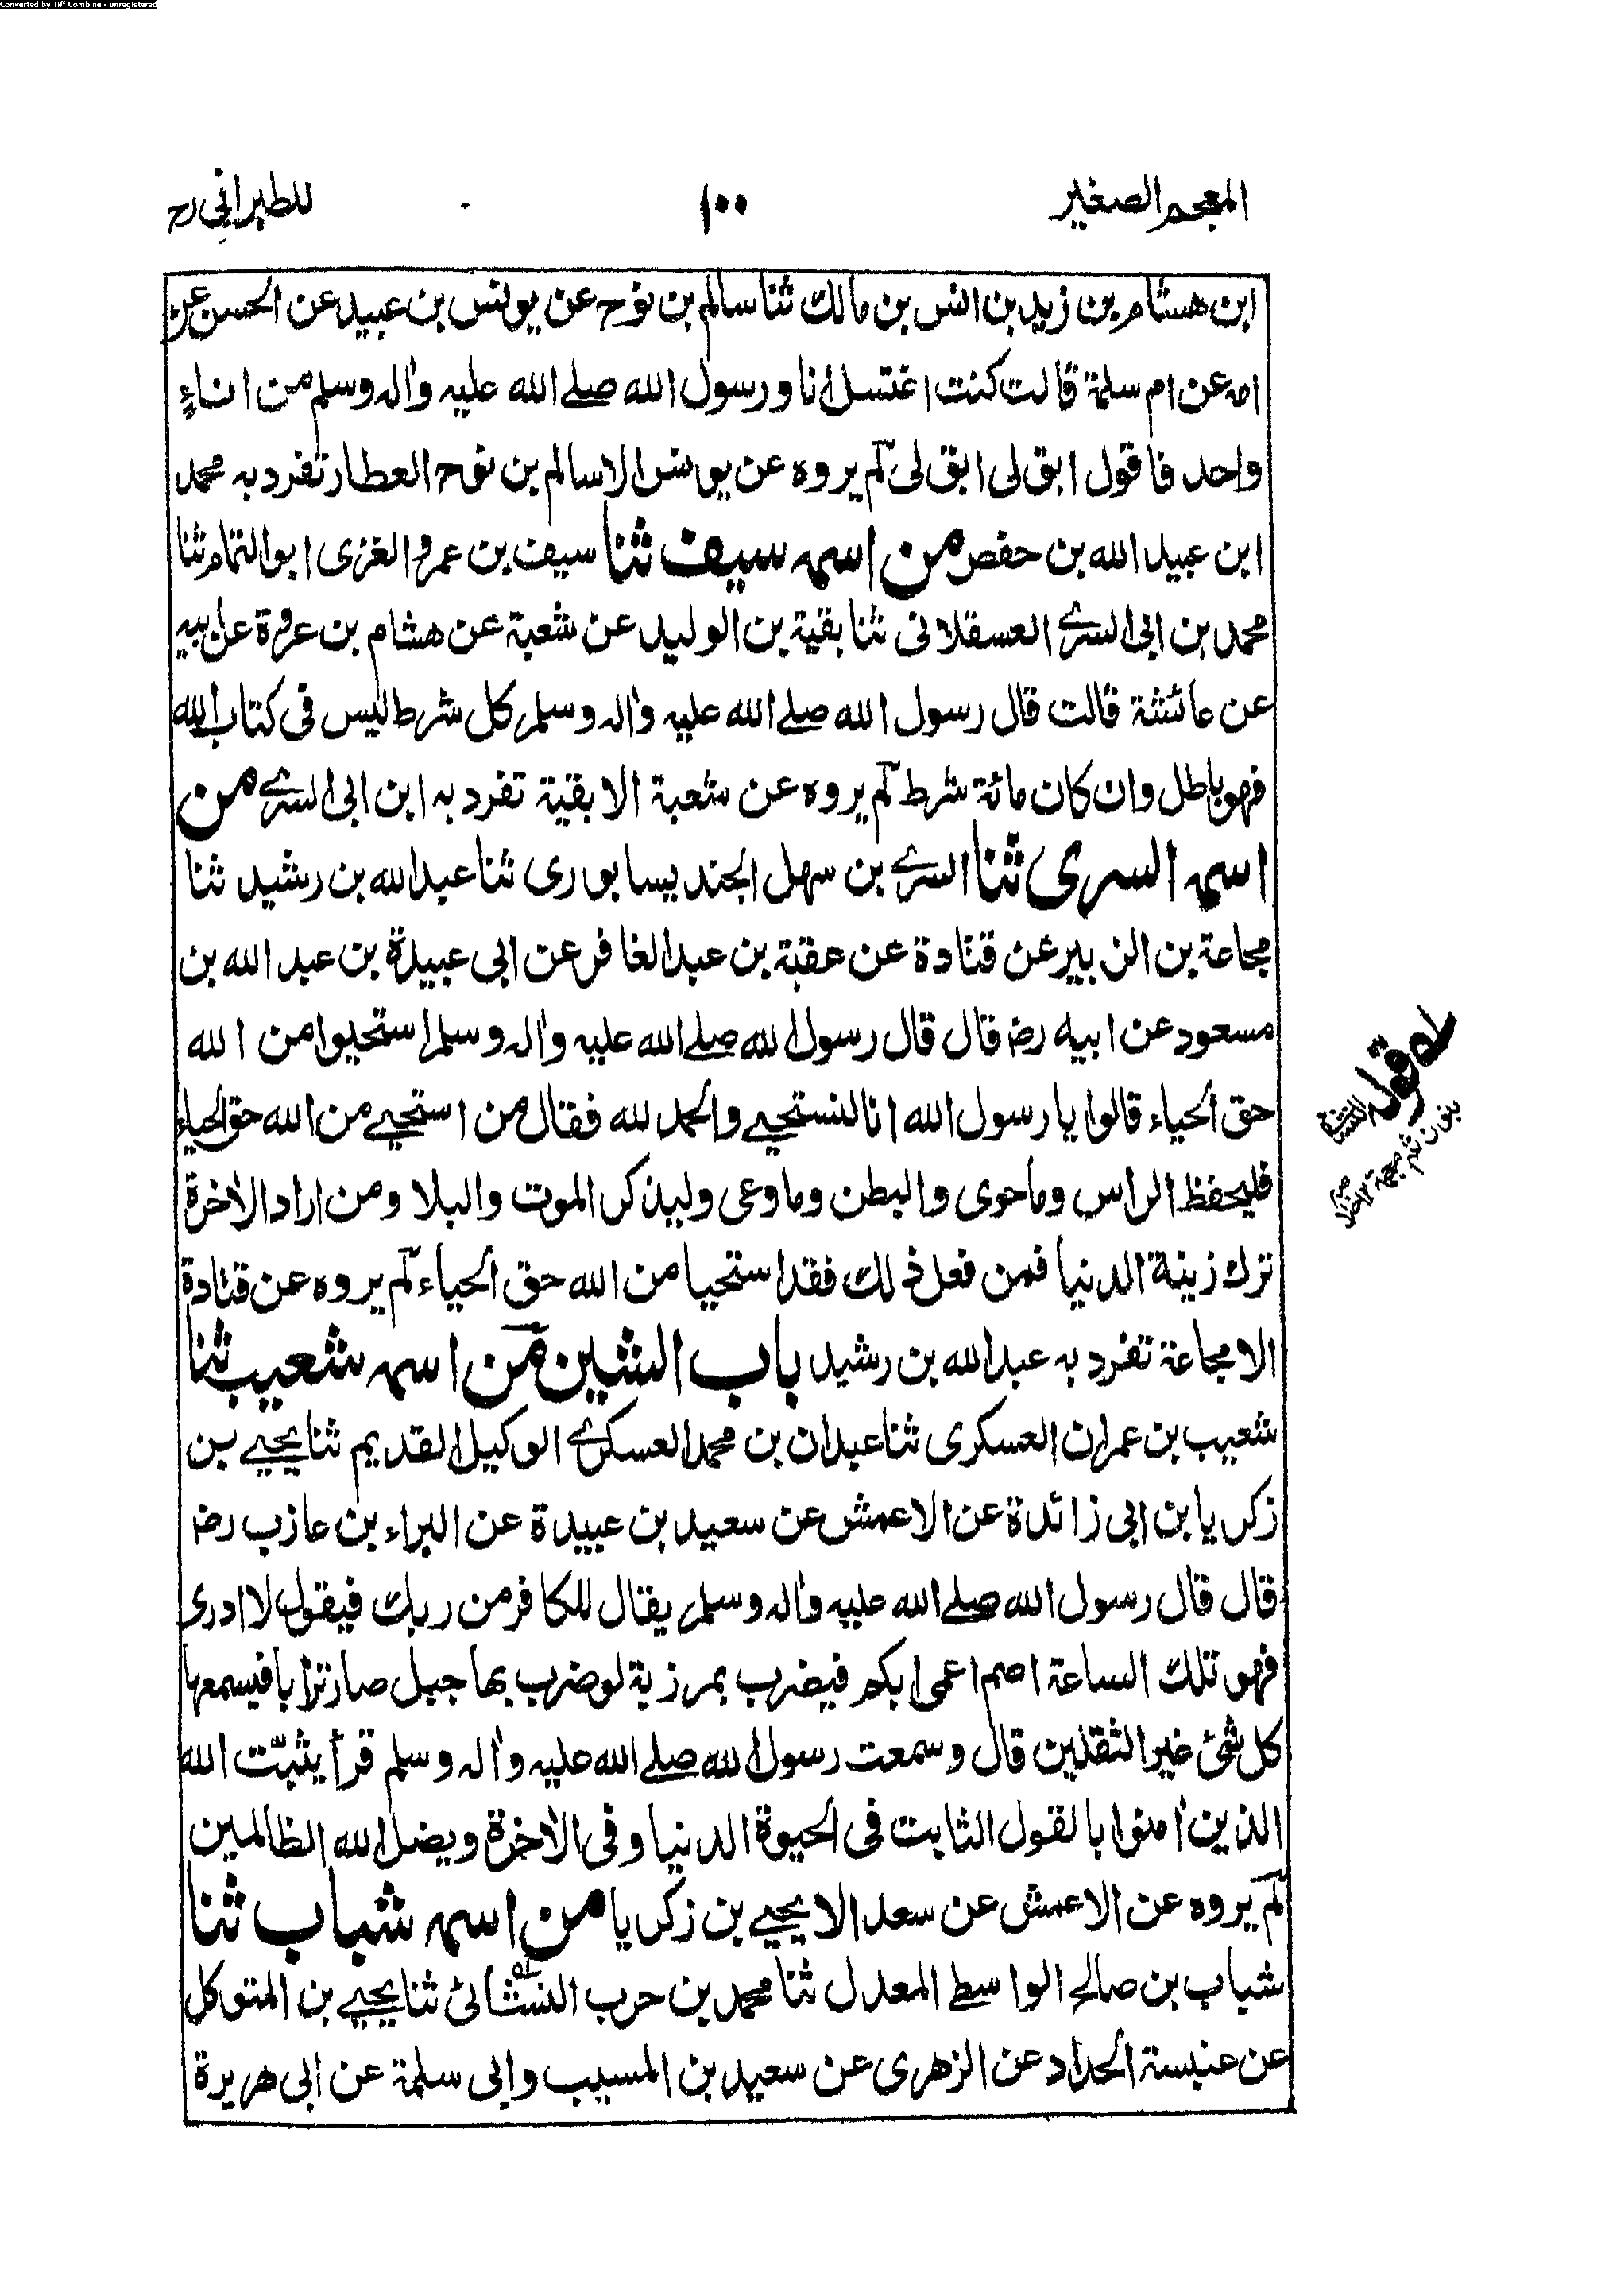 Converted by Tiff Combine - unregistered
المعجم الصغير ١٠٠ للطبرانی رح
ابن هشام بن زید بن انس بن مالك ثنا سالم بن نوح عن یونس بن عبید عن الحسن عن
امه عن ام سلمة قالت كنت اغتسل انا و رسول الله صلے الله علیه واٰله وسلم من اناءٍ
واحد فاقول ابق لی ابق لی لم یروه عن یونس الا سالم بن نوح العطار تفرد به محمد
ابن عبید الله بن حفص من اسمه سیف ثنا سیف بن عمرو الغزی ابو التمام ثنا
محمد بن ابی السرے العسقلانی ثنا بقیة بن الولید عن شعبة عن هشام بن عروة عن ابیه
عن عائشة قالت قال رسول الله صلے الله علیه واٰله وسلم كل شرط لیس فی كتاب الله
فهو باطل وان كان مائة شرط لم یروه عن شعبة الا بقیة تفرد به ابن ابی السرے من
اسمه السری ثنا السرے بن سهل الجندیسابوری ثنا عبد الله بن رشید ثنا
مجاعة بن الزبیر عن قتادة عن عقبة بن عبد الغافر عن ابی عبیدة بن عبد الله بن
مسعود عن ابیه رضہ قال قال رسول الله صلے الله علیه واٰله وسلم استحیوا من الله
حق الحیاء قالوا یا رسول الله انا لنستحیے والحمد لله فقال من استحیے من الله حق الحیاء
فلیحفظ الراس وما حوی والبطن وما وعی ولیذكر الموت والبلا ومن اراد الاٰخرة
ترك زینة الدنیا فمن فعل ذلك فقد استحیا من الله حق الحیاء لم یروه عن قتادة
الا مجاعة تفرد به عبد الله بن رشید باب الشین من اسمه شعیب ثنا
شعیب بن عمران العسكری ثنا عبدان بن محمد العسكرے الوكیل القدیم ثنا یحیے بن
زكریا بن ابی زائدة عن الاعمش عن سعید بن عبیدة عن البراء بن عازب رضہ
قال قال رسول الله صلے الله علیه واٰله وسلم یقال للكافر من ربك فیقول لا ادری
فهو تلك الساعة اصم اعمی ابكم فیضرب بمرزبة لو ضرب بها جبل صار ترابا فیسمعها
كل شئ غیر الثقلین قال وسمعت رسول الله صلے الله علیه واٰله وسلم قرأ یثبّت الله
الذین اٰمنوا بالقول الثابت فی الحیوة الدنیا وفی الاٰخرة ویضل الله الظالمین
لم یروه عن الاعمش عن سعد الا یحیے بن زكریا من اسمه شباب ثنا
شباب بن صالح الواسطے المعدل ثنا محمد بن حرب النشائی ثنا یحیے بن المتوكل
عن عنبسة الحداد عن الزهری عن سعید بن المسیب وابی سلمة عن ابی هریرة
له قوله النشائی
بنون ثم معجمة